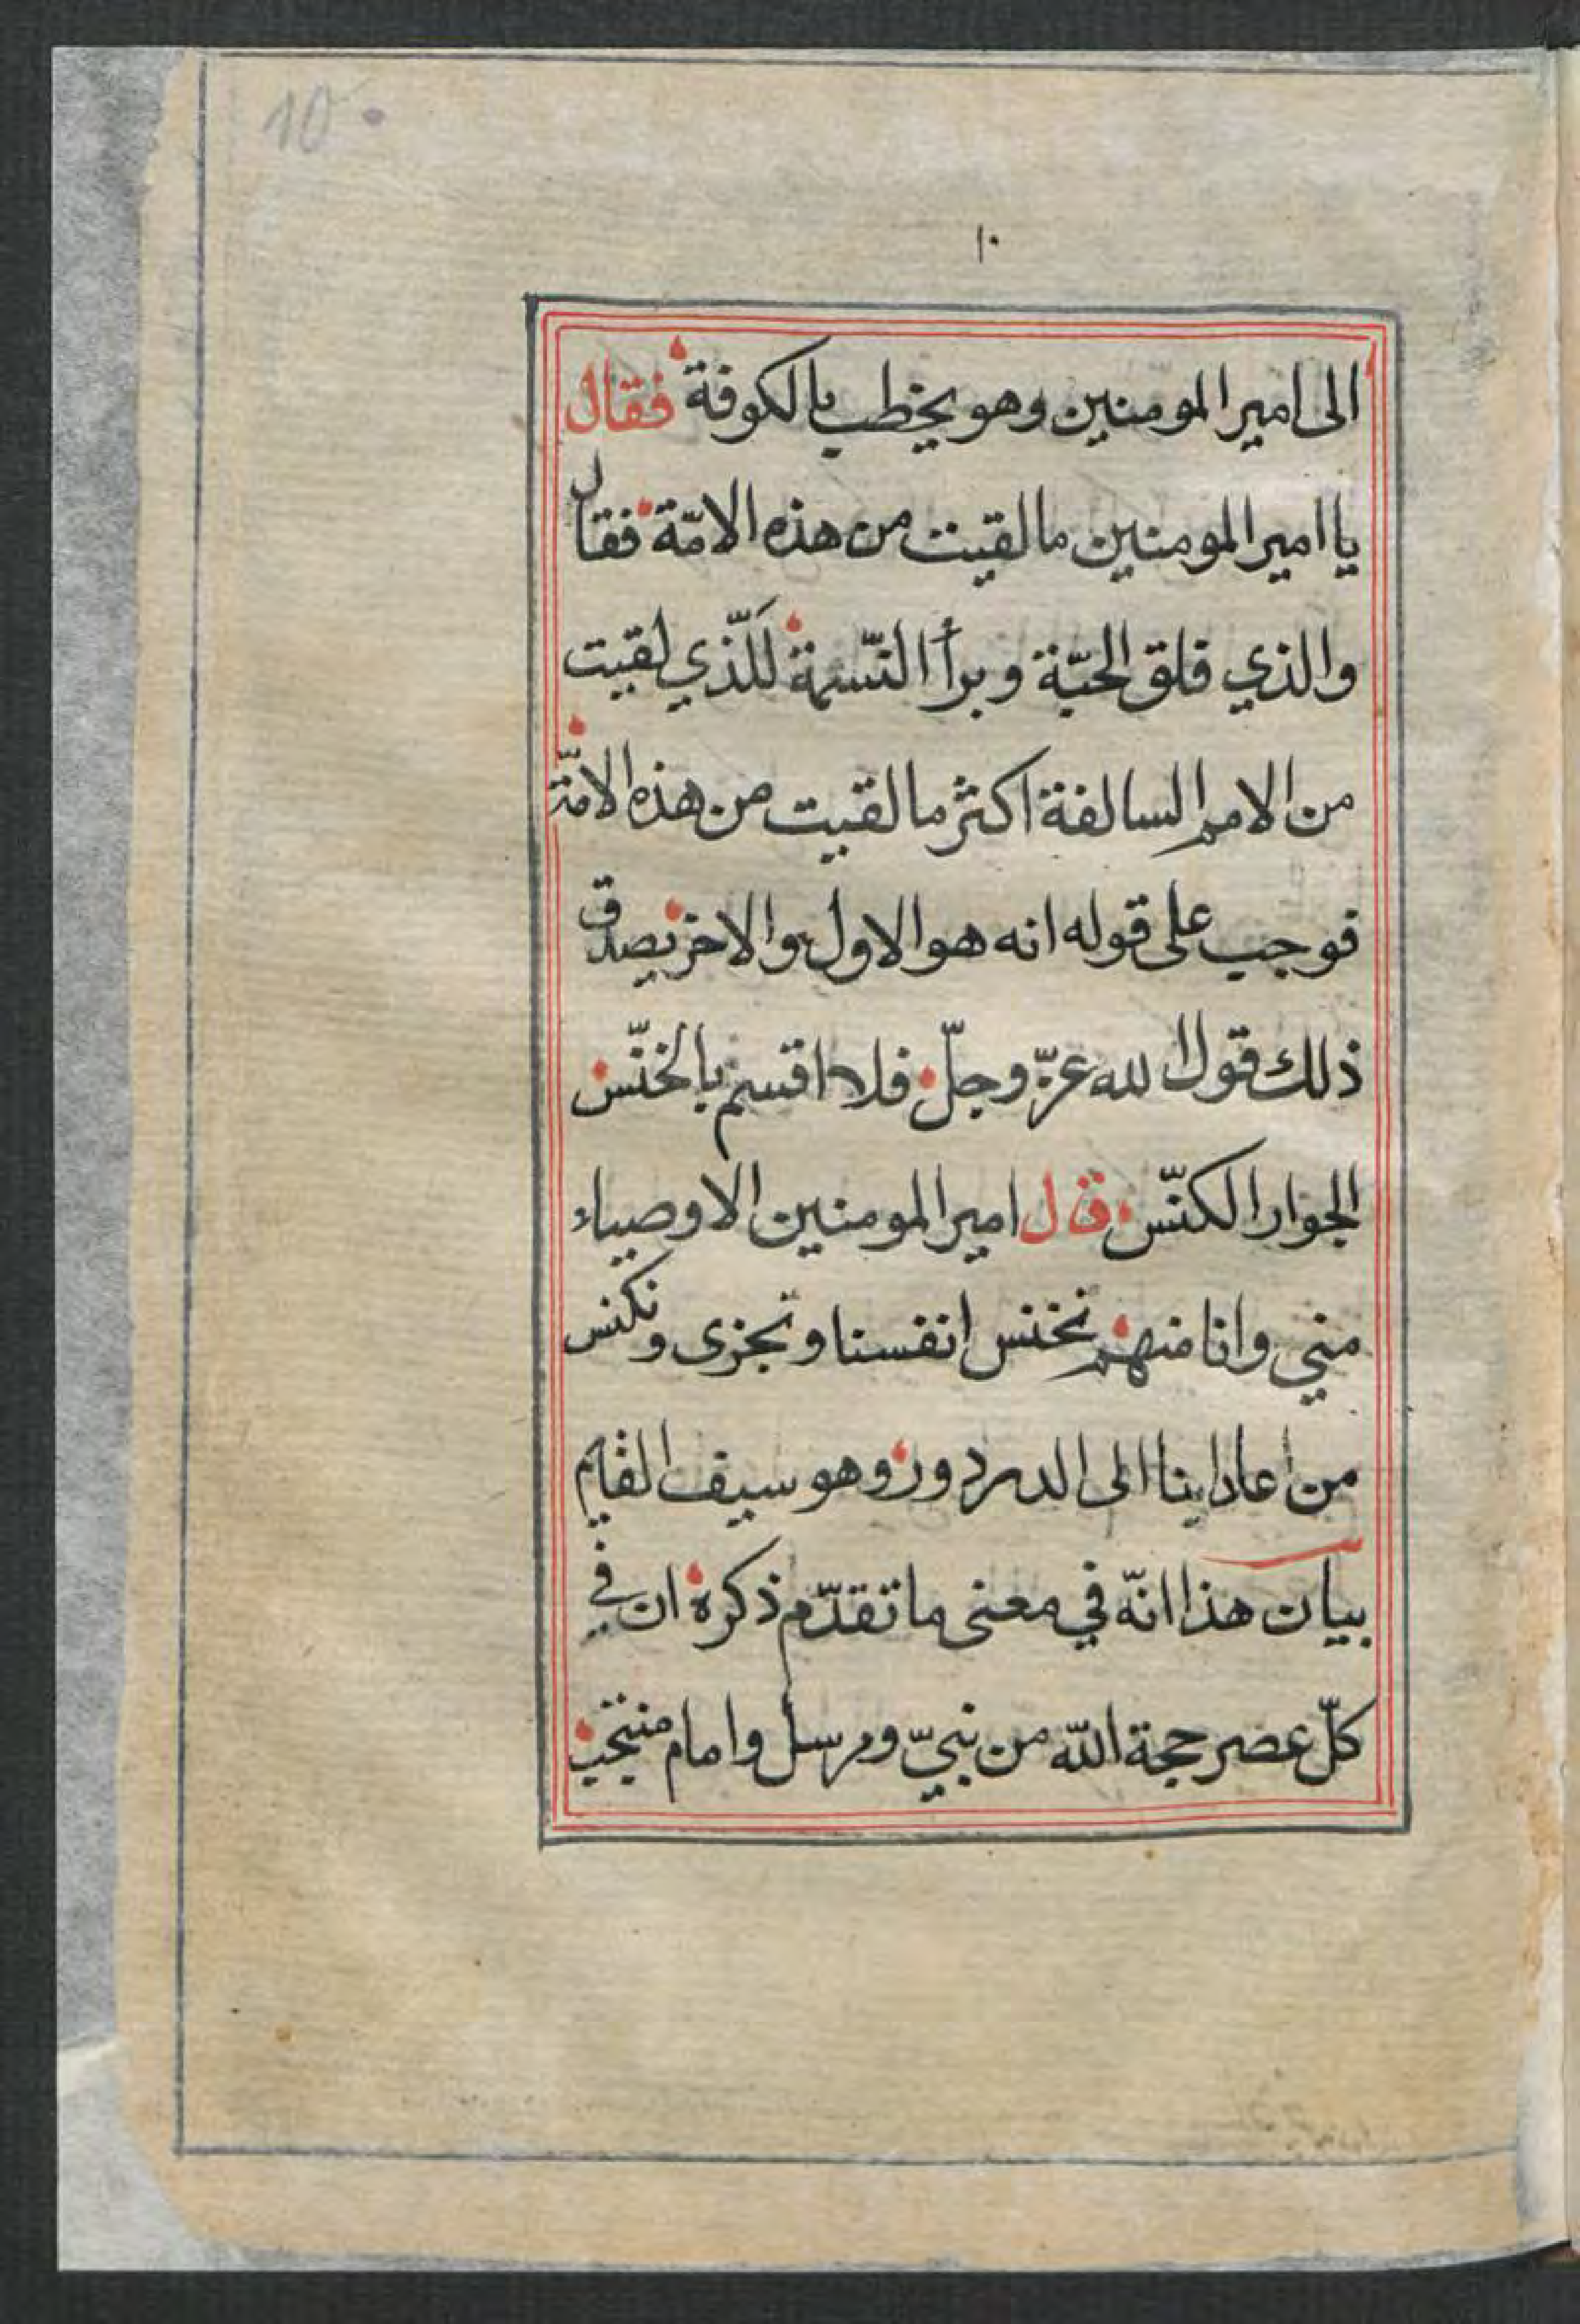 10
١٠
الى امير المومنين وهو يخطب بالكوفة فقال
يا امير المومنين ما لقيت من هذه الامّة فقال
والذي فلق الحبّة وبرأ النّسمة للّذي لقيت
من الامم السالفة اكثر ما لقيت من هذه الامّة
فوجب على قوله انه هو الاول والاخر يصدق
ذلك قول الله عزّ وجلّ فلا اقسم بالخنّس
الجوار الكنّس قال امير المومنين الاوصياء
مني وانا منهم نخنس انفسنا ونجزى ونكنس
من اعادينا الى الدردور وهو سيف القايم
بيان هذا انّه في معنى ما تقدّم ذكره ان في
كلّ عصر حجة الله من نبيّ ومرسل وامام منتجب